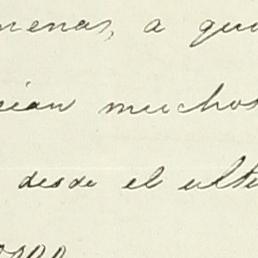 menas, a que
cian muchos
desde el ulti